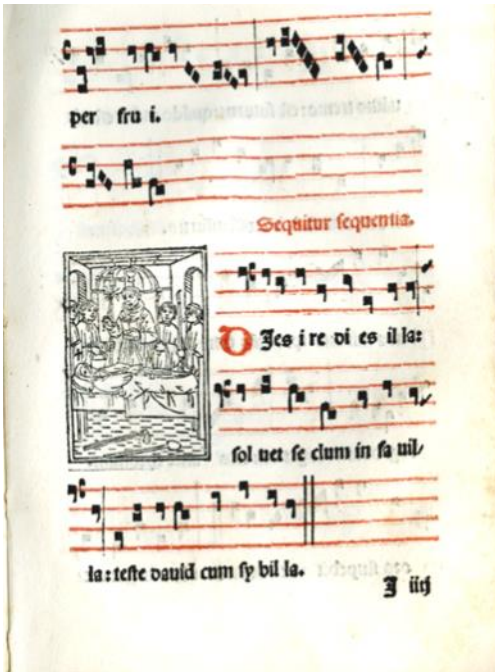 per fru i.
Sequitur sequentia.
DJes i re di es il la:
sol uet se clum in fa uil/
la: teste dauid cum sy bil la.
J iiij